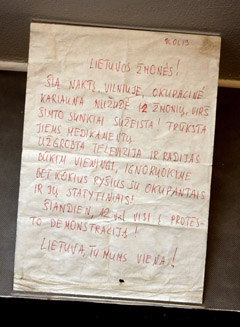 LIETUVOS ŽMONĖS!
ŠIĄ NAKTĮ, VILNIUJE, OKUPACINĖ
KARIAUNA NUŽUDĖ 12 ŽMONIŲ, VIRŠ
ŠIMTO SUNKIAI SUŽEISTA! TRŪKSTA
JIEMS MEDIKAMENTŲ
UŽGROBTA TELEVIZIJA IR RADIJAS
BŪKIM VIENINGI, IGNORUOKIME
BET KOKIUS RYŠIUS SU OKUPANTAIS
IR JŲ STATYTINIAIS!
ŠIANDIEN, 12 val VISI Į PROTES-
TO DEMONSTRACIJĄ!
LIETUVA, TU MUMS VIENA!